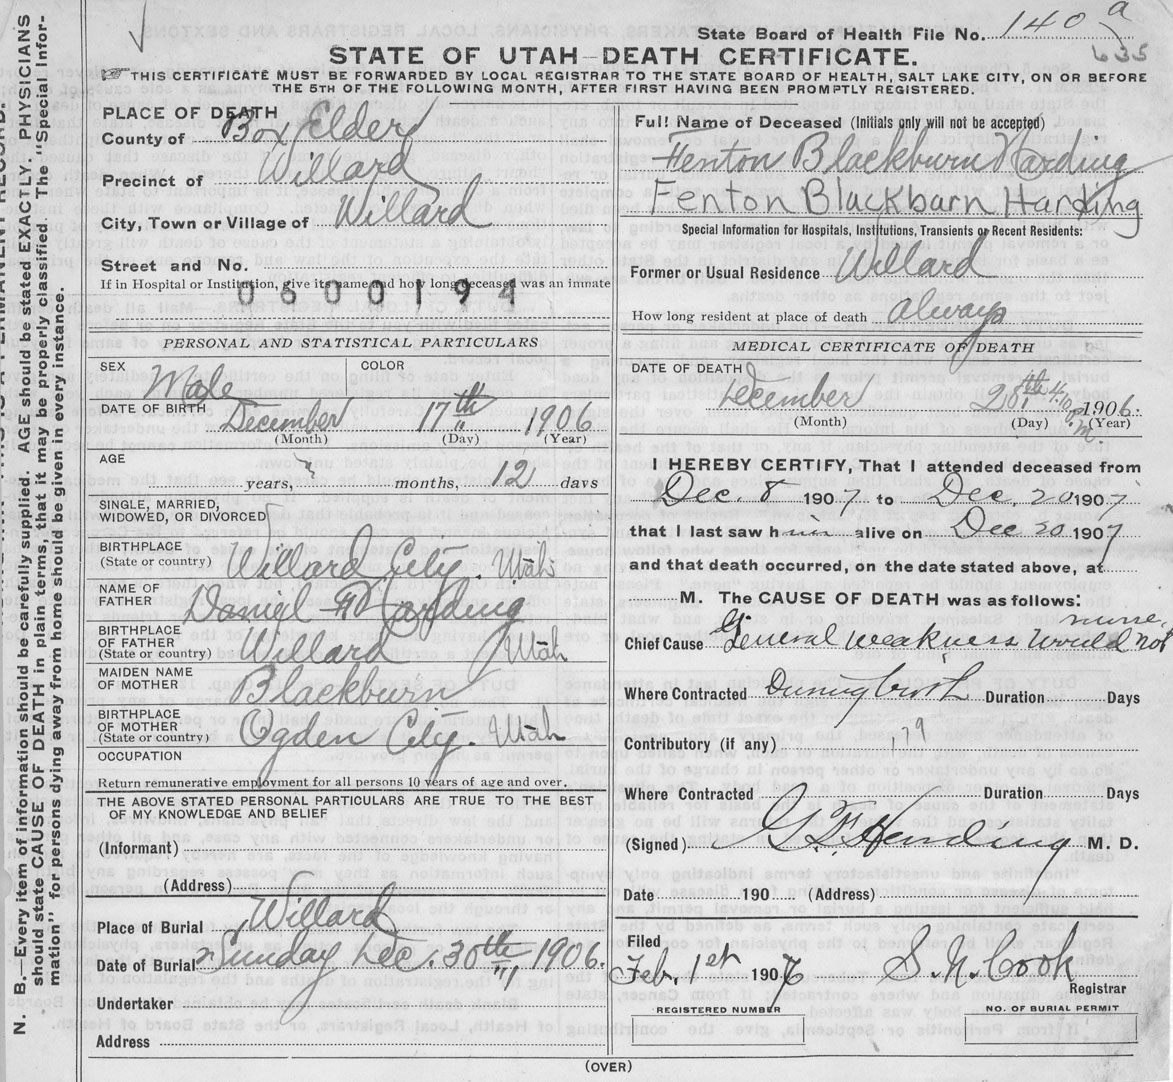 State Board of Health File No. 140 a
635
STATE OF UTAH—DEATH CERTIFICATE.
☞ THIS CERTIFICATE MUST BE FORWARDED BY LOCAL REGISTRAR TO THE STATE BOARD OF HEALTH, SALT LAKE CITY, ON OR BEFORE
THE 5TH OF THE FOLLOWING MONTH, AFTER FIRST HAVING BEEN PROMPTLY REGISTERED.
PLACE OF DEATH
County of Box Elder
Precinct of Willard
City, Town or Village of Willard
Street and No.
If in Hospital or Institution, give its name and how long deceased was an inmate
0600194
PERSONAL AND STATISTICAL PARTICULARS
SEX Male COLOR
DATE OF BIRTH December 17th 1906
(Month) (Day) (Year)
AGE
years, months, 12 days
SINGLE, MARRIED,
WIDOWED, OR DIVORCED
BIRTHPLACE
(State or country) Willard City Utah
NAME OF
FATHER Daniel Harding
BIRTHPLACE
OF FATHER
(State or country) Willard Utah
MAIDEN NAME
OF MOTHER Blackburn
BIRTHPLACE
OF MOTHER
(State or country) Ogden City. Utah
OCCUPATION
Return remunerative employment for all persons 10 years of age and over.
THE ABOVE STATED PERSONAL PARTICULARS ARE TRUE TO THE BEST
OF MY KNOWLEDGE AND BELIEF
(Informant)
(Address)
Place of Burial Willard
Date of Burial Sunday Dec. 30th 1906.
Undertaker
Address
Full Name of Deceased (Initials only will not be accepted)
Fenton Blackburn Harding
Fenton Blackburn Harding
Special Information for Hospitals, Institutions, Transients or Recent Residents:
Former or Usual Residence Willard
How long resident at place of death always
MEDICAL CERTIFICATE OF DEATH
DATE OF DEATH
December 28th 1906
(Month) (Day) (Year)
I HEREBY CERTIFY, That I attended deceased from
Dec. 8 1907 to Dec 20 1907
that I last saw him alive on Dec 20 1907
and that death occurred, on the date stated above, at
M. The CAUSE OF DEATH was as follows:
nurse.
Chief Cause General weakness would not
Where Contracted During birth Duration Days
Contributory (if any) 179
Where Contracted Duration Days
(Signed) Harding M. D.
Date 190 (Address)
Filed
Feb. 1st 1907 S. N. Cook
Registrar
REGISTERED NUMBER
NO. OF BURIAL PERMIT
(OVER)
N. B.—Every item of information should be carefully supplied. AGE should be stated EXACTLY. PHYSICIANS
should state CAUSE OF DEATH in plain terms, that it may be properly classified. The "Special Infor-
mation" for persons dying away from home should be given in every instance.